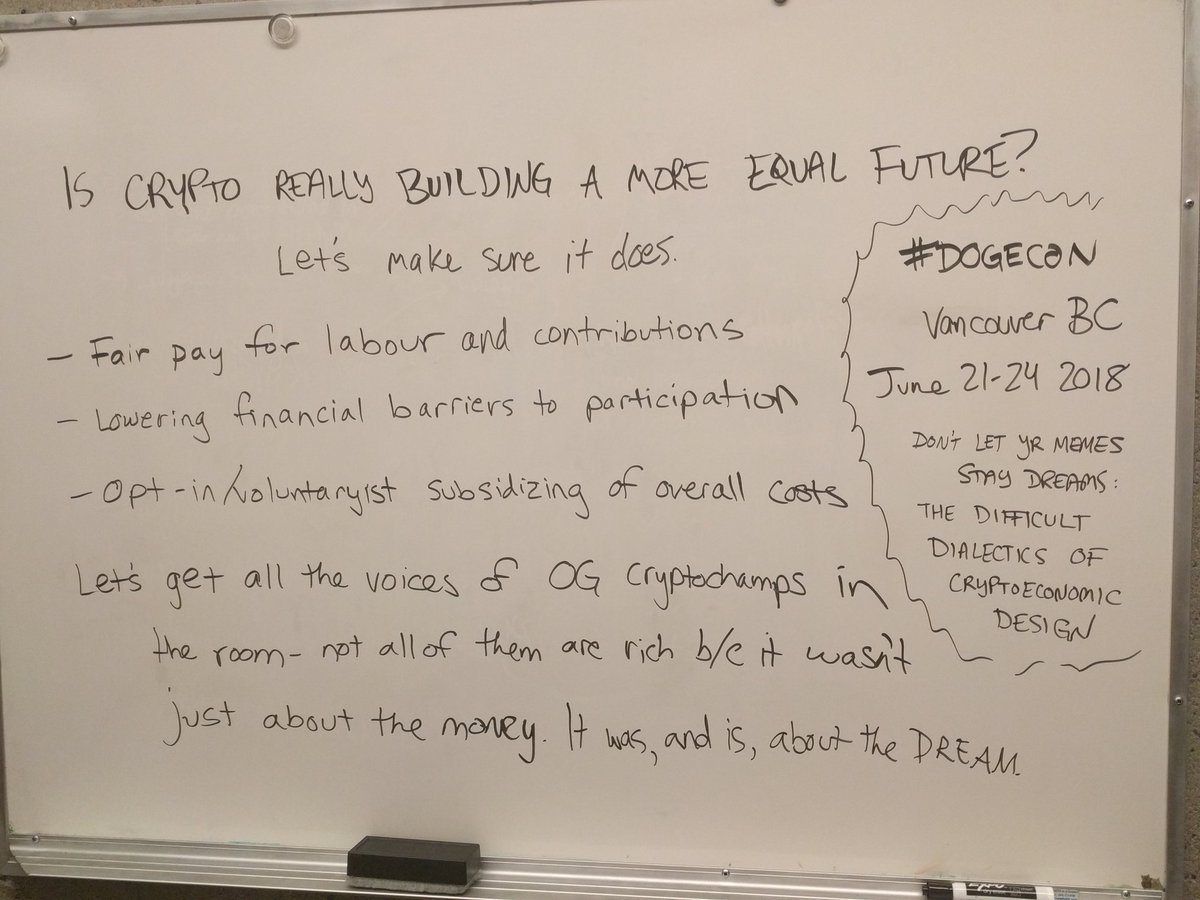 IS CRYPTO REALLY BUILDING A MORE EQUAL FUTURE?
Let's make sure it does.
- Fair pay for labour and contributions
- Lowering financial barriers to participation
- Opt-in/voluntaryist subsidizing of overall costs
Let's get all the voices of OG cryptochamps in
the room - not all of them are rich b/c it wasn't
just about the money. It was, and is, about the DREAM.
#DOGECON
Vancouver BC
June 21-24 2018
DON'T LET YR MEMES
STAY DREAMS:
THE DIFFICULT
DIALECTICS OF
CRYPTOECONOMIC
DESIGN
EXPO